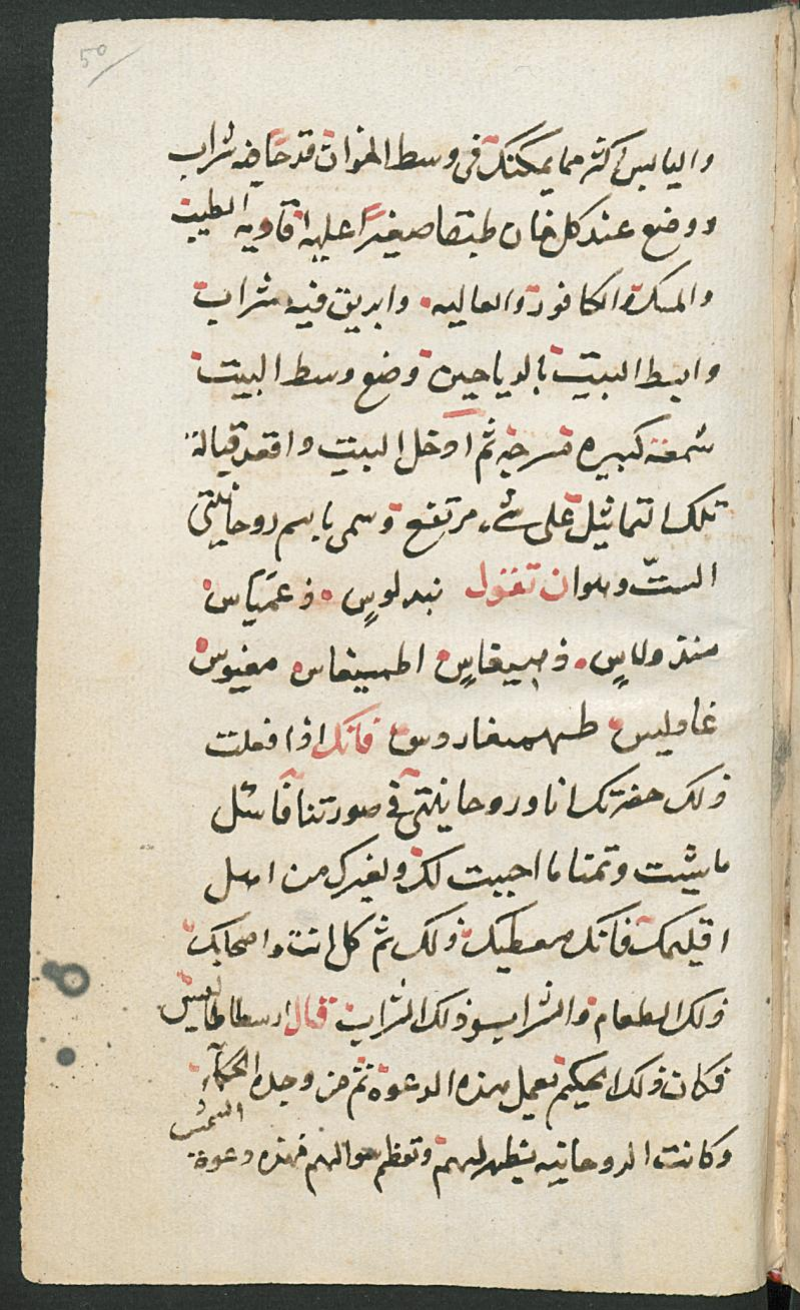 50
واليابس اكثر مما يمكنك فى وسط الخوان قدحا فيه شراب
ووضع عند كل خان طبقا صغيرا عليه افاويه الطيب
والمسك والكافور والغاليه وابريق فيه شراب
وابسط البيت بالرياحين وضع وسط البيت
شمعة كبيره مسرجه ثم ادخل البيت واقعد قبالة
تلك التماثيل على شىء مرتفع وسمى باسم روحانيتى
الستّ وهو ان تقول نبدلوس ذعمياس
مندولاس ذهبيفاس اطميفاس مغنيوس
غاميس طهميفاروس فانك اذا فعلت
ذلك حضرتك انا وروحانيتى فى صورتنا فاسئل
ما شئت وتمنا ما احببت لك ولغيرك من اهل
اقليمك فانك معطيك ذلك ثم كل انت واصحابك
ذلك الطعام والشرابو ذلك الشراب قال ارسطاطاليس
فكان ذلك الحكيم يعمل هذه الدعوة ثم من وجده الحكمآء
وكانت الروحانيه يظهر لهم وتعظم احوالهم فهذه دعوة الشمس